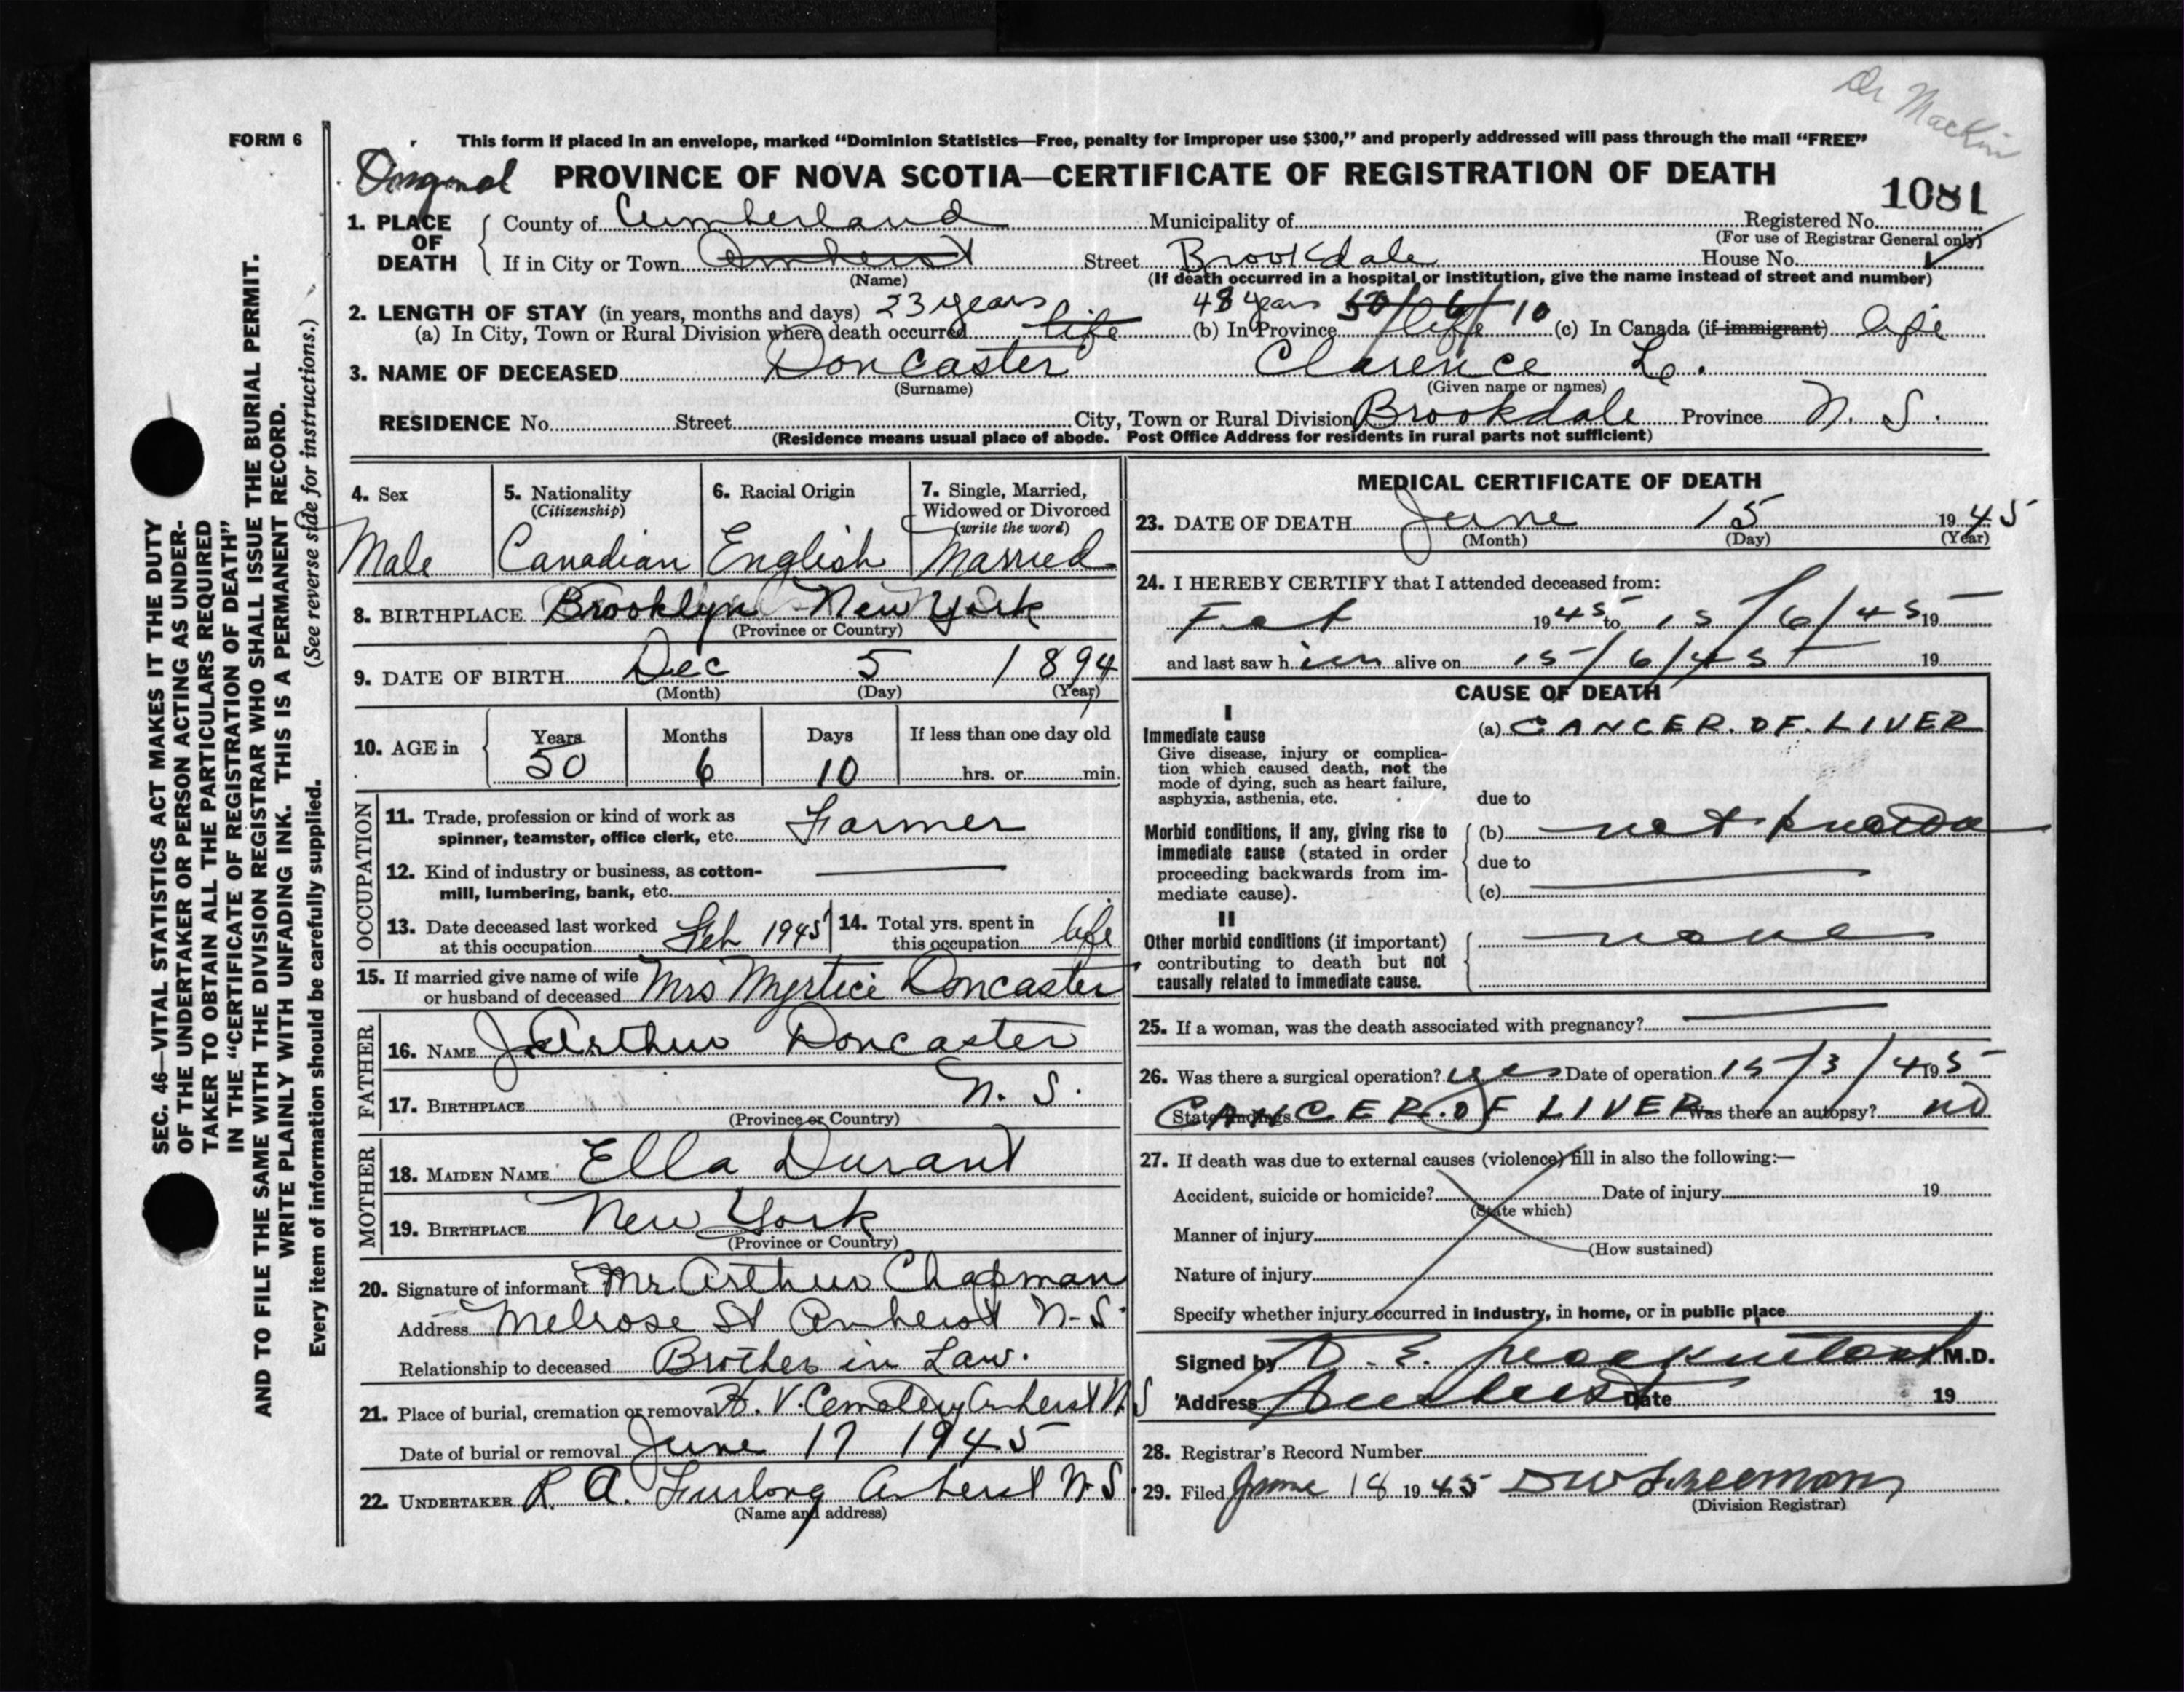 Dr MacKin
FORM 6
This form if placed in an envelope, marked "Dominion Statistics—Free, penalty for improper use $300," and properly addressed will pass through the mail "FREE"
Original PROVINCE OF NOVA SCOTIA—CERTIFICATE OF REGISTRATION OF DEATH
1081
1. PLACE OF DEATH County of Cumberland Municipality of Registered No.
(For use of Registrar General only)
If in City or Town Amherst Street Brookdale House No.
(Name) (If death occurred in a hospital or institution, give the name instead of street and number)
2. LENGTH OF STAY (in years, months and days) 23 years 48 years 50/6/10
(a) In City, Town or Rural Division where death occurred life (b) In Province life (c) In Canada (if immigrant) life
3. NAME OF DECEASED Doncaster Clarence Le.
(Surname) (Given name or names)
RESIDENCE No. Street City, Town or Rural Division Brookdale Province N. S.
(Residence means usual place of abode. Post Office Address for residents in rural parts not sufficient)
4. Sex 5. Nationality (Citizenship) 6. Racial Origin 7. Single, Married, Widowed or Divorced (write the word)
Male Canadian English Married
8. BIRTHPLACE Brooklyn - New York
(Province or Country)
9. DATE OF BIRTH Dec 5 1894
(Month) (Day) (Year)
10. AGE in Years Months Days If less than one day old
50 6 10 hrs. or min.
OCCUPATION
11. Trade, profession or kind of work as
spinner, teamster, office clerk, etc. Farmer
12. Kind of industry or business, as cotton-
mill, lumbering, bank, etc.
13. Date deceased last worked at this occupation Feb 1945 14. Total yrs. spent in this occupation life
15. If married give name of wife
or husband of deceased Mrs Myrtice Doncaster
FATHER
16. NAME J Arthur Doncaster
17. BIRTHPLACE N. S.
(Province or Country)
MOTHER
18. MAIDEN NAME Ella Durant
19. BIRTHPLACE New York
(Province or Country)
20. Signature of informant Mr. Arthur Chapman
Address Melrose St Amherst N-S.
Relationship to deceased Brother in Law.
21. Place of burial, cremation or removal H. V. Cemetery Amherst N S
Date of burial or removal June 17 1945
22. UNDERTAKER R. A. Furlong Amherst N-S.
(Name and address)
MEDICAL CERTIFICATE OF DEATH
23. DATE OF DEATH June 15 1945
(Month) (Day) (Year)
24. I HEREBY CERTIFY that I attended deceased from:
1945 to 15/6/45 19
and last saw him alive on 15/6/45 19
CAUSE OF DEATH
I
Immediate cause (a) CANCER OF LIVER
Give disease, injury or complica-
tion which caused death, not the
mode of dying, such as heart failure,
asphyxia, asthenia, etc. due to
Morbid conditions, if any, giving rise to (b) not known
immediate cause (stated in order due to
proceeding backwards from im-
mediate cause). (c)
II
Other morbid conditions (if important) none
contributing to death but not
causally related to immediate cause.
25. If a woman, was the death associated with pregnancy?
26. Was there a surgical operation? yes Date of operation 15/3/45 19
State findings CANCER OF LIVER Was there an autopsy? no
27. If death was due to external causes (violence) fill in also the following:—
Accident, suicide or homicide? Date of injury 19
(State which)
Manner of injury
(How sustained)
Nature of injury
Specify whether injury occurred in industry, in home, or in public place
Signed by D. E. M.D.
Address Amherst Date 19
28. Registrar's Record Number
29. Filed June 18 1945 D W Freeman
(Division Registrar)
SEC. 46—VITAL STATISTICS ACT MAKES IT THE DUTY
OF THE UNDERTAKER OR PERSON ACTING AS UNDER-
TAKER TO OBTAIN ALL THE PARTICULARS REQUIRED
IN THE "CERTIFICATE OF REGISTRATION OF DEATH"
AND TO FILE THE SAME WITH THE DIVISION REGISTRAR WHO SHALL ISSUE THE BURIAL PERMIT.
WRITE PLAINLY WITH UNFADING INK. THIS IS A PERMANENT RECORD.
Every item of information should be carefully supplied. (See reverse side for instructions.)